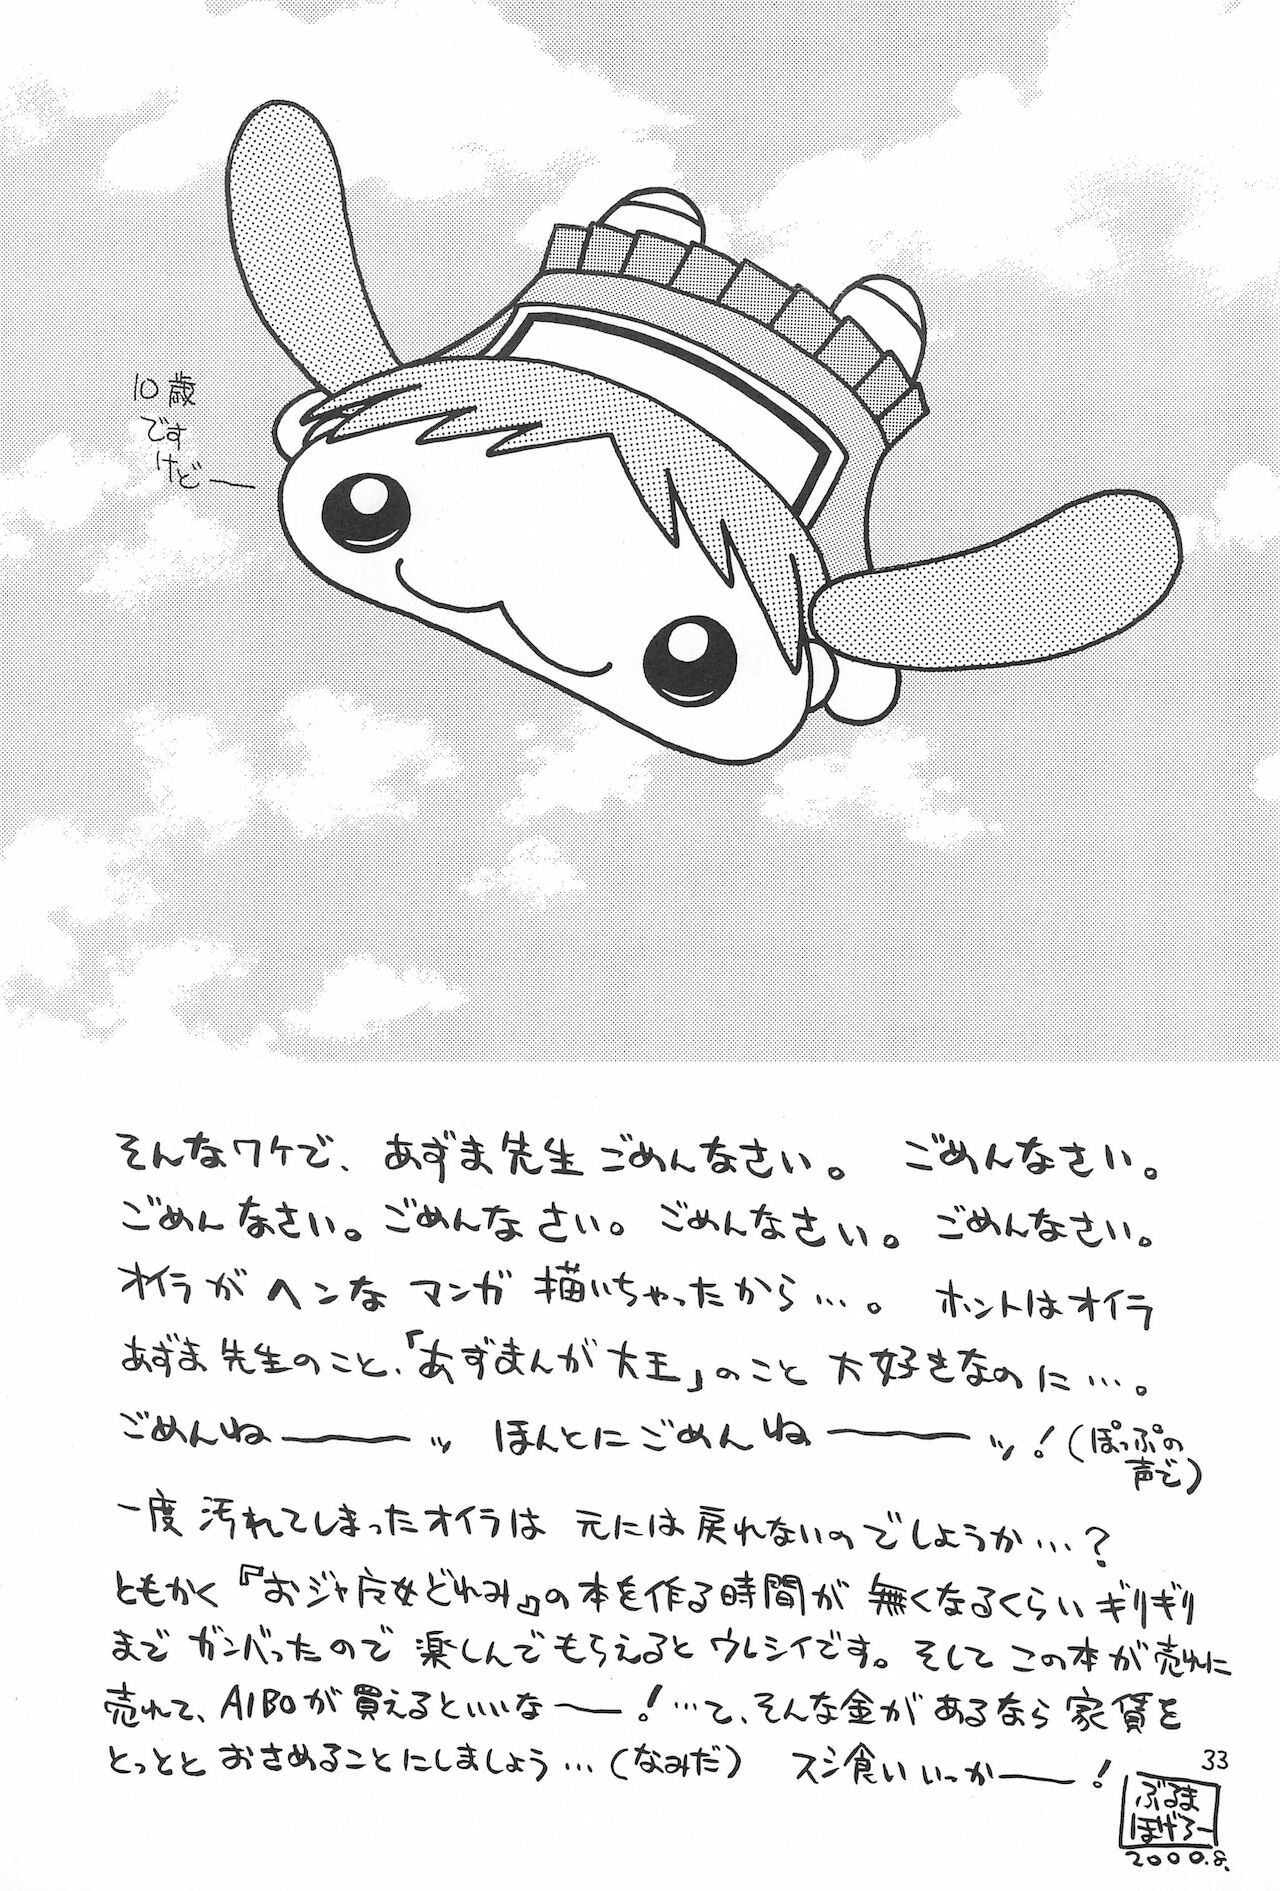 10歳
です
けどー
そんなワケで、あずま先生ごめんなさい。ごめんなさい。
ごめんなさい。ごめんなさい。ごめんなさい。ごめんなさい。
オイラがヘンなマンガ描いちゃったから…。ホントはオイラ
あずま先生のこと、「あずまんが大王」のこと大好きなのに…。
ごめんねーーッ ほんとにごめんねーーッ!(ぽっぷの
声で)
一度汚れてしまったオイラは元には戻れないのでしょうか…?
ともかく『おジャ魔女どれみ』の本を作る時間が無くなるくらいギリギリ
までガンバったので楽しんでもらえるとウレシイです。そしてこの本が売れに
売れて、AIBOが買えるといいなー!…て、そんな金があるなら家賃を
とっととおさめることにしましょう…(なみだ) スシ食いいっかー!
33
ぶるま
ほげろー
2000.8.